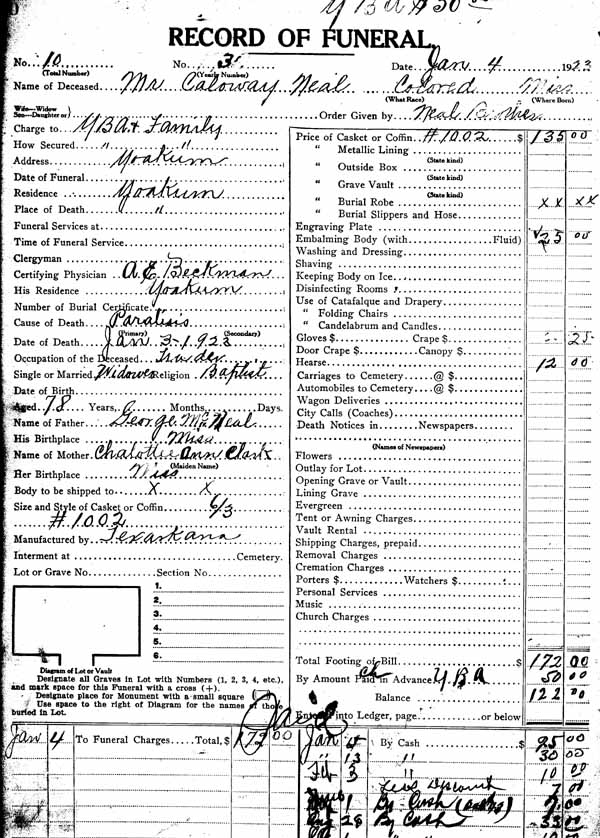 YBA $30 00
RECORD OF FUNERAL
No. 10 (Total Number) No. 3 (Yearly Number) Date Jan 4 1923
Name of Deceased Mr Caloway Neal Colored (What Race) Miss (Where Born)
Wife—Widow
Son—Daughter of
Order Given by Neal Brothers
Charge to YBA + Family
How Secured " "
Address Yoakum
Date of Funeral
Residence Yoakum
Place of Death "
Funeral Services at
Time of Funeral Service
Clergyman
Certifying Physician A.E. Beckman
His Residence Yoakum
Number of Burial Certificate
Cause of Death Paralisis
(Primary) (Secondary)
Date of Death Jan 3-1923
Occupation of the Deceased
Single or Married Widower Religion Baptist
Date of Birth
Aged 78 Years, Months, Days.
Name of Father George Mc Neal
His Birthplace Miss
Name of Mother Chalottie Ann Clark
(Maiden Name)
Her Birthplace Miss
Body to be shipped to X X
Size and Style of Casket or Coffin 6/3
#1002
Manufactured by Texarkana
Interment at Cemetery.
Lot or Grave No. Section No.
1.
2.
3.
4.
5.
6.
Diagram of Lot or Vault
Designate all Graves in Lot with Numbers (1, 2, 3, 4, etc.),
and mark space for this Funeral with a cross (+).
Designate place for Monument with a small square
Use space to the right of Diagram for the names of those
buried in Lot.
Price of Casket or Coffin #1002 $ 135 00
" Metallic Lining
(State kind)
" Outside Box
(State kind)
" Grave Vault
(State kind)
" Burial Robe X X X X
" Burial Slippers and Hose
Engraving Plate
Embalming Body (with Fluid) 25 00
Washing and Dressing
Shaving
Keeping Body on Ice
Disinfecting Rooms
Use of Catafalque and Drapery
" Folding Chairs
" Candelabrum and Candles
Gloves $ Crape $ 25
Door Crape $ Canopy $
Hearse 12 00
Carriages to Cemetery @ $
Automobiles to Cemetery @ $
Wagon Deliveries
City Calls (Coaches)
Death Notices in Newspapers
(Names of Newspapers)
Flowers
Outlay for Lot
Opening Grave or Vault
Lining Grave
Evergreen
Tent or Awning Charges
Vault Rental
Shipping Charges, prepaid
Removal Charges
Cremation Charges
Porters $ Watchers $
Personal Services
Music
Church Charges
Total Footing of Bill $ 172 00
By Amount Paid in Advance Y.B.A 50 00
Balance 122 00
Entered into Ledger, page or below
Paid
Jan 4 To Funeral Charges Total, $ 172 00
Jan 4 By Cash $ 95 00
" 13 " 30 00
" 10 00
Less Discount 7 00
1 By Cash 7.00
28 By Cash 33 00